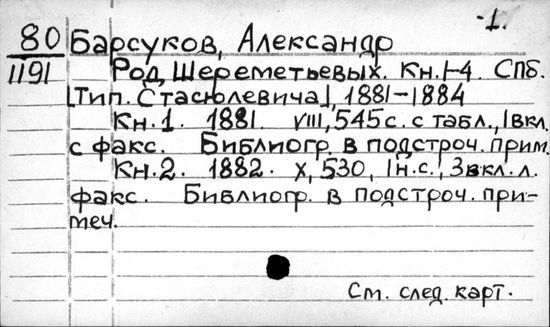 -1.
80 Барсуков, Александр
1191 Род Шереметьевых. Кн. 1-4. Спб.
[Тип. Стасюлевича], 1881-1884
Кн. 1. 1881. VIII, 545 с. с табл., 1 вкл.
с факс. Библиогр. в подстроч. прим.
Кн. 2. 1882. X, 530, 1 н.с., 3 вкл. л.
факс. Библиогр. в подстроч. при-
меч.
См. след. карт.